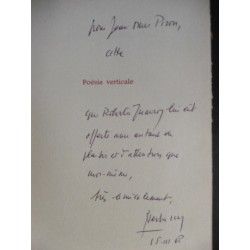 pour Jean
cette
Poésie verticale
que Roberto Juarroz lui eût
offerte avec autant de
plaisir et d'attention que
moi-même,
très amicalement,